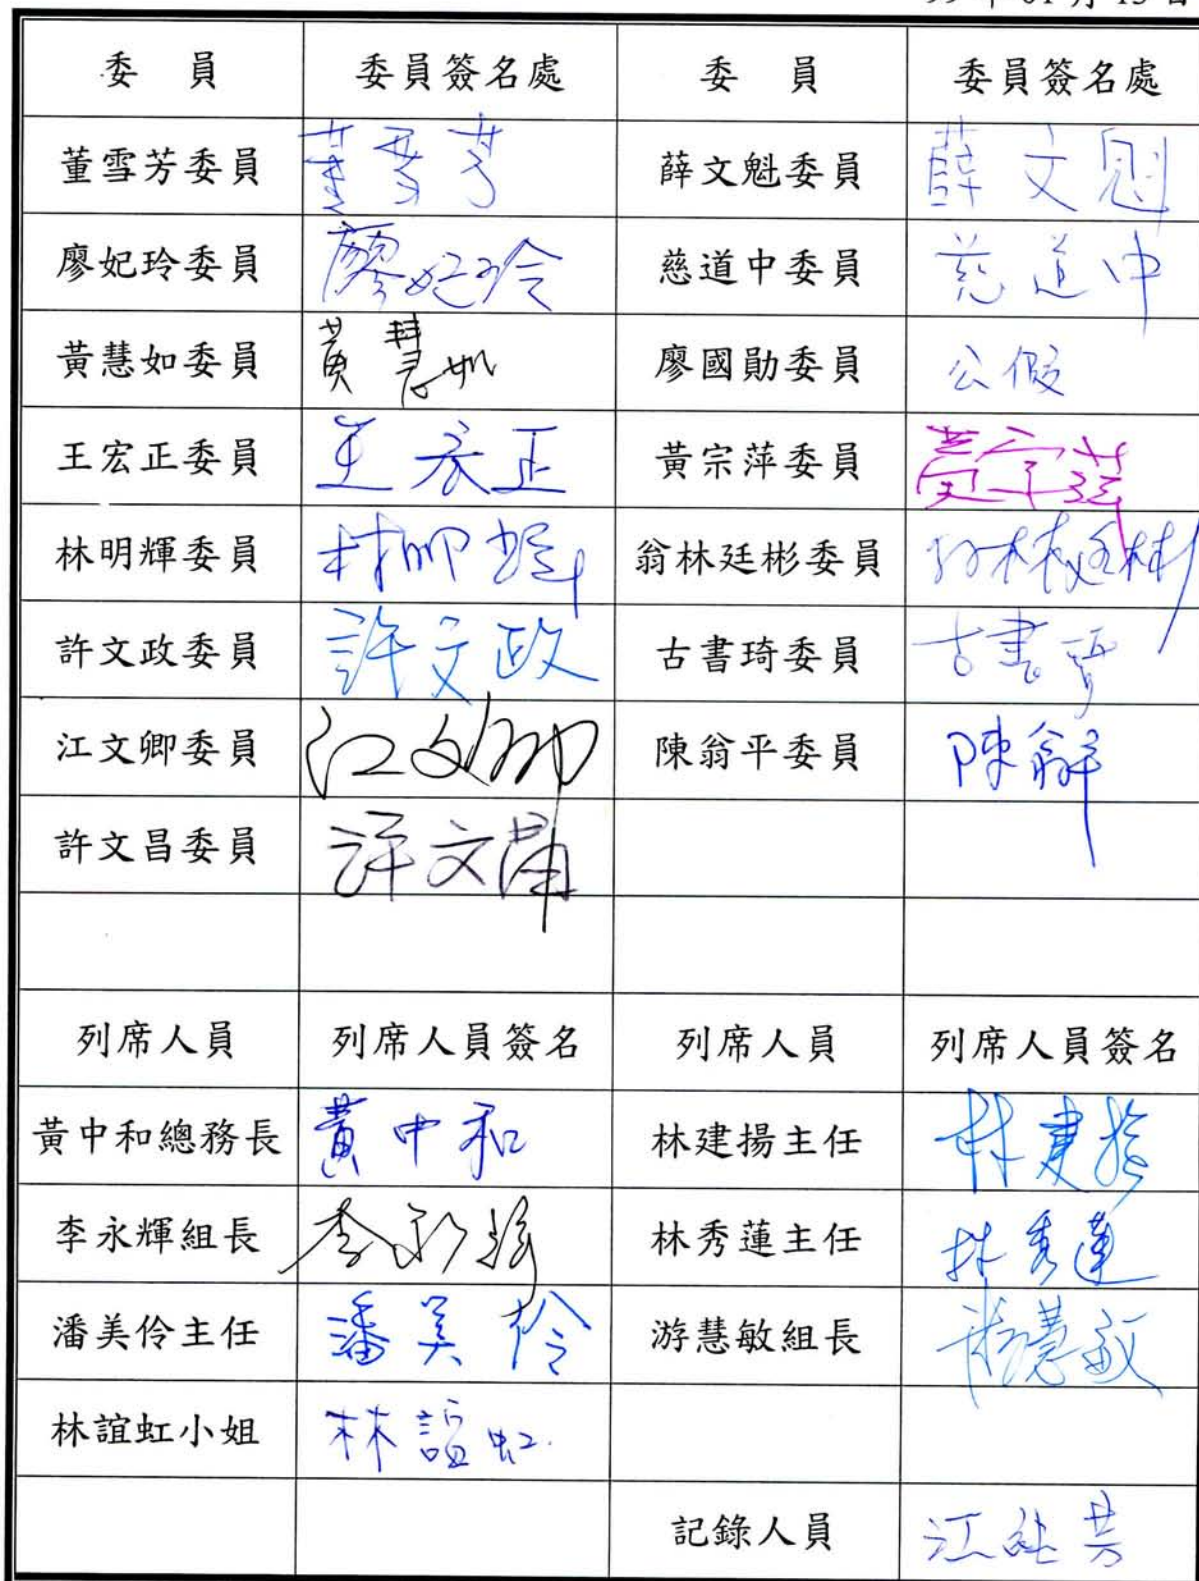 年 01 月 13 日
委 員 委員簽名處 委 員 委員簽名處
董雪芳委員 董雪芳 薛文魁委員 薛文魁
廖妃玲委員 廖妃玲 慈道中委員 慈道中
黃慧如委員 黃慧如 廖國勛委員 公假
王宏正委員 王宏正 黃宗萍委員 黃宗萍
林明輝委員 林明輝 翁林廷彬委員 翁林廷彬
許文政委員 許文政 古書琦委員 古書琦
江文卿委員 江文卿 陳翁平委員 陳翁平
許文昌委員 許文
列席人員 列席人員簽名 列席人員 列席人員簽名
黃中和總務長 黃中和 林建揚主任 林建揚
李永輝組長 李永輝 林秀蓮主任 林秀蓮
潘美伶主任 潘美伶 游慧敏組長 游慧敏
林誼虹小姐 林誼虹
記錄人員 江